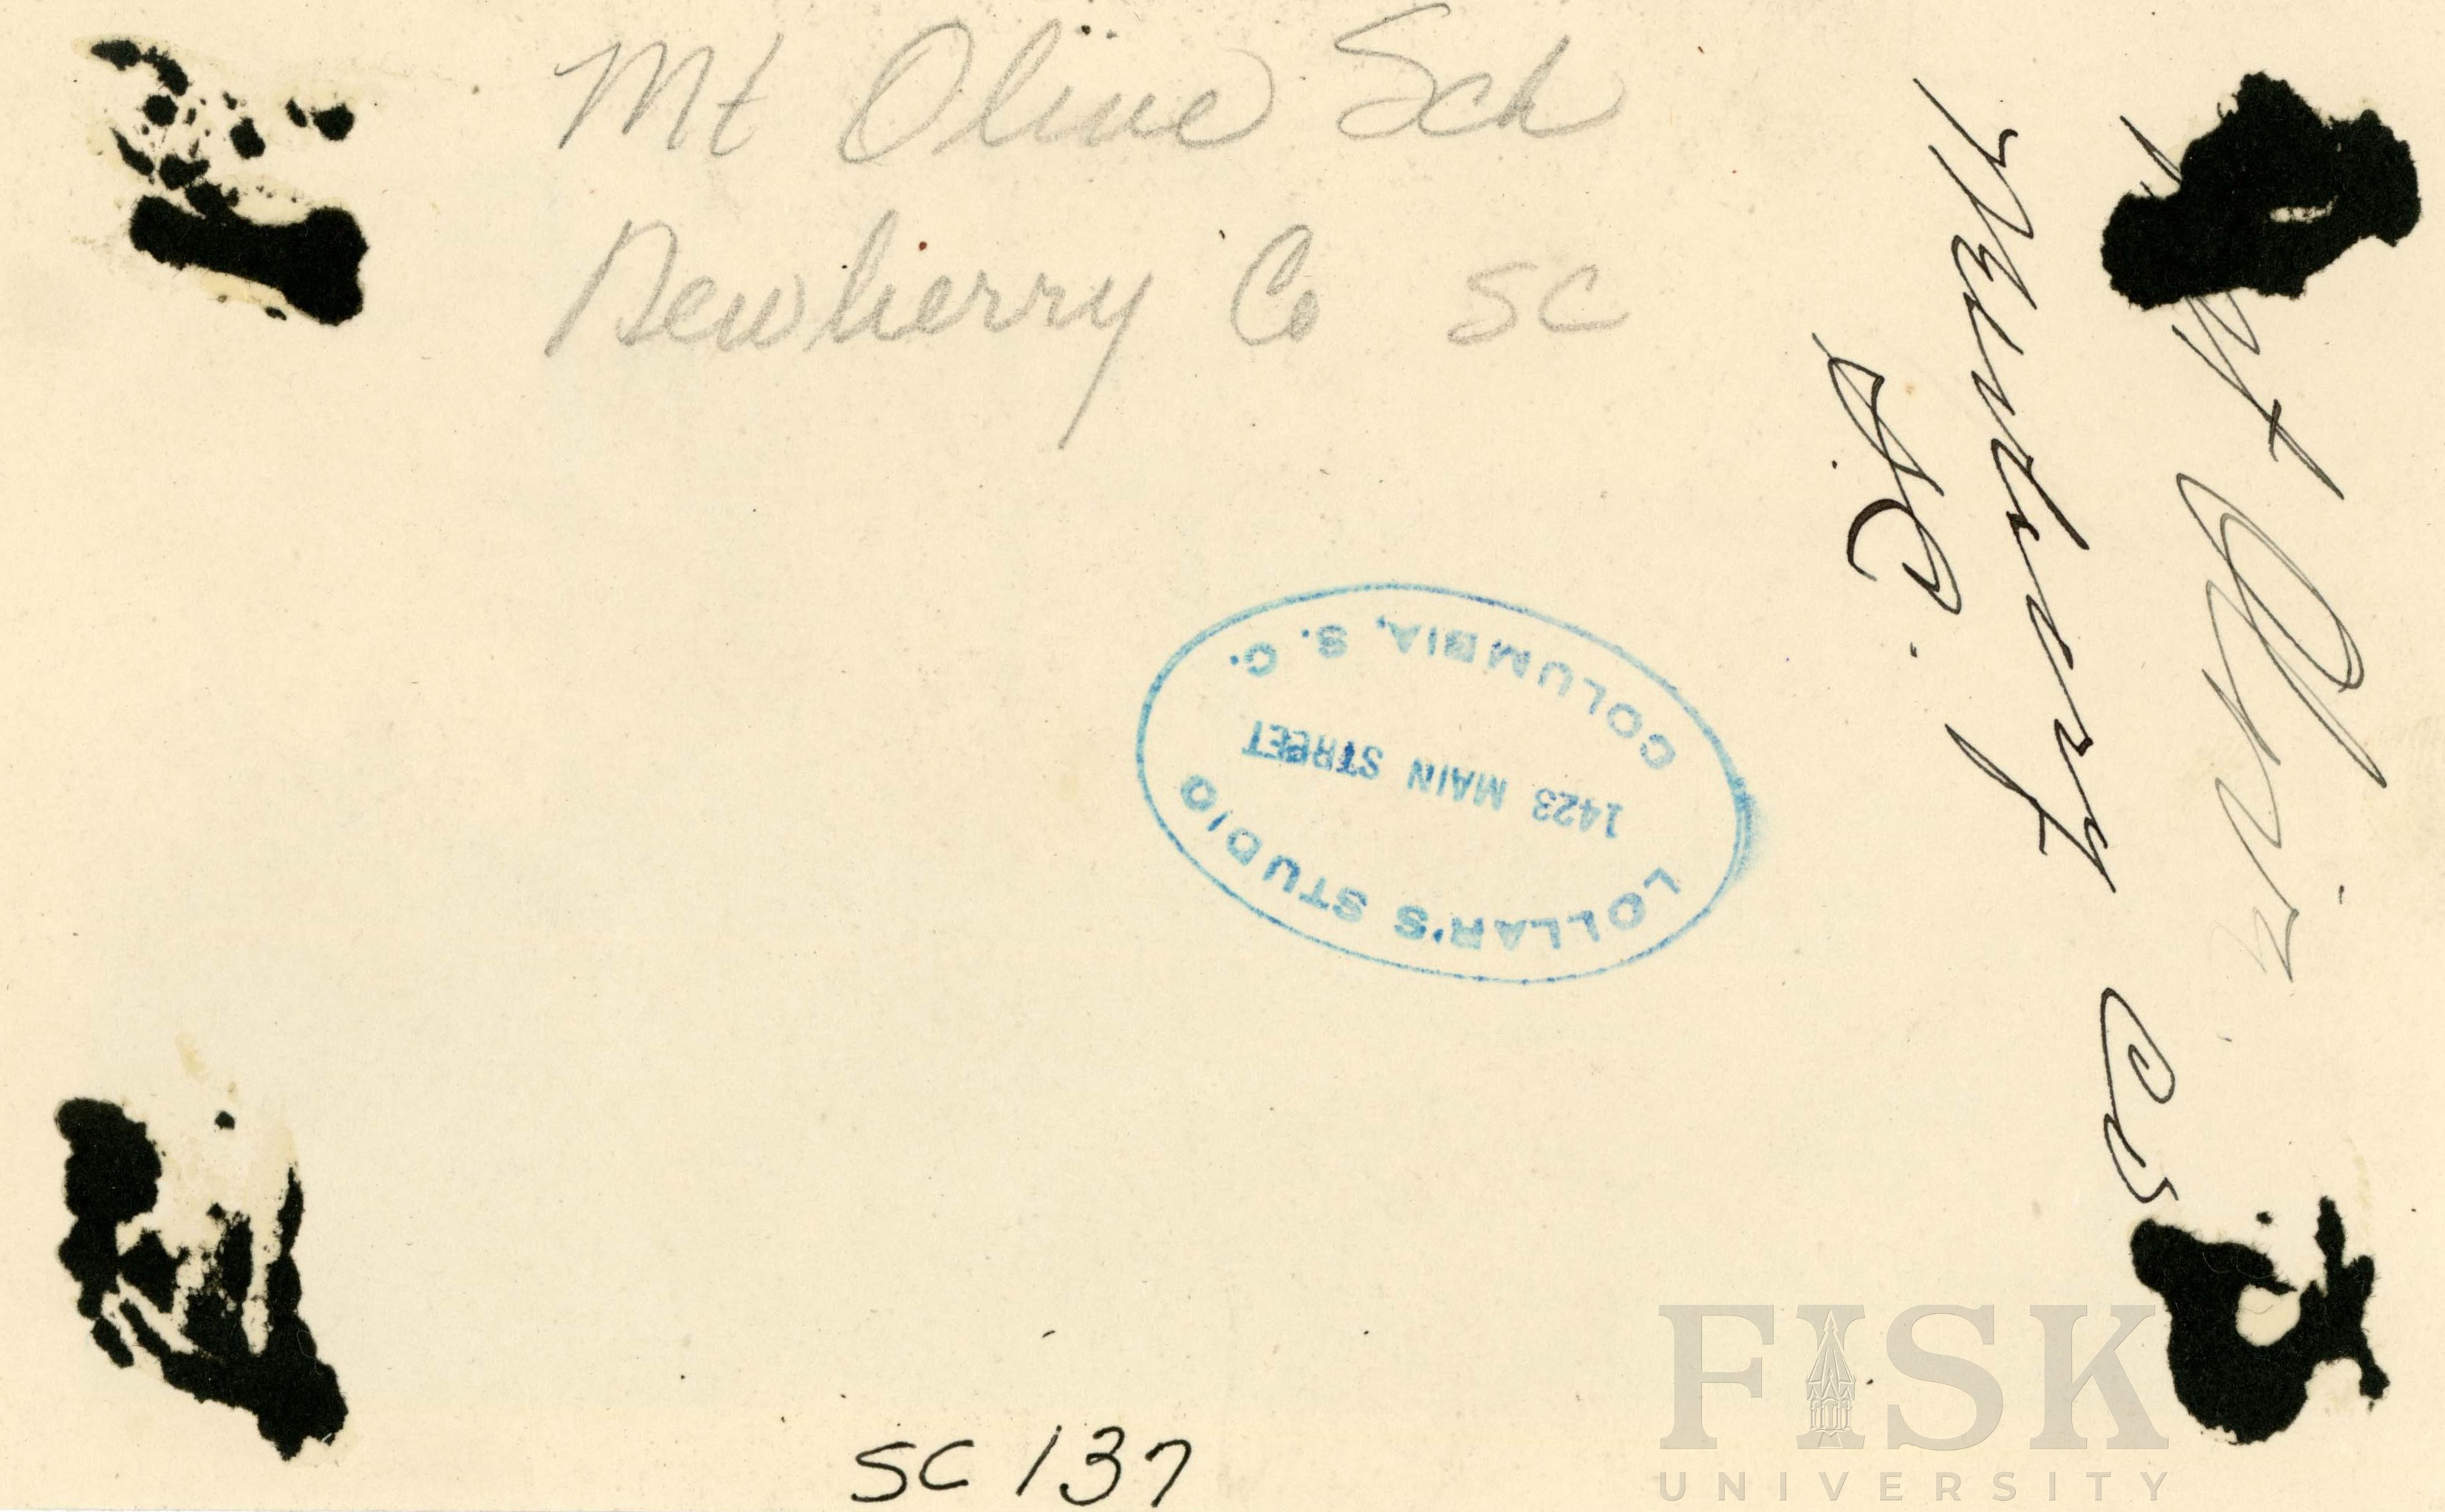 Mt Olive Sch
Newberry Co SC
Newberry Co
SC
LOLLAR'S STUDIO
1423 MAIN STREET
COLUMBIA, S. C.
SC 137
FISK
UNIVERSITY